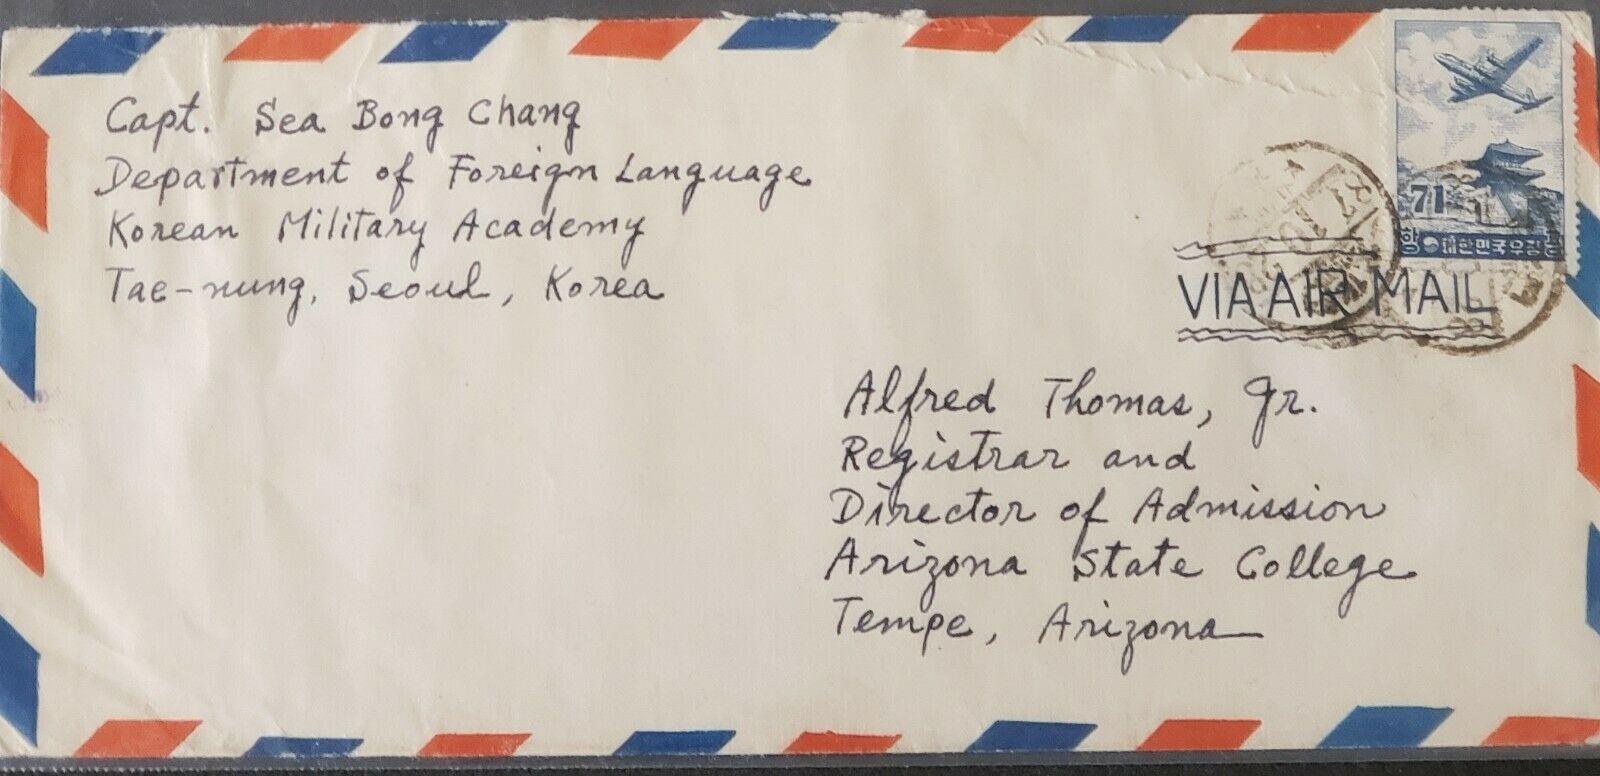 Capt. Sea Bong Chang
Department of Foreign Language
Korean Military Academy
Tae-nung, Seoul, Korea
71
항 대한민국우표
VIA AIR MAIL
Alfred Thomas, Jr.
Registrar and
Director of Admission
Arizona State College
Tempe, Arizona